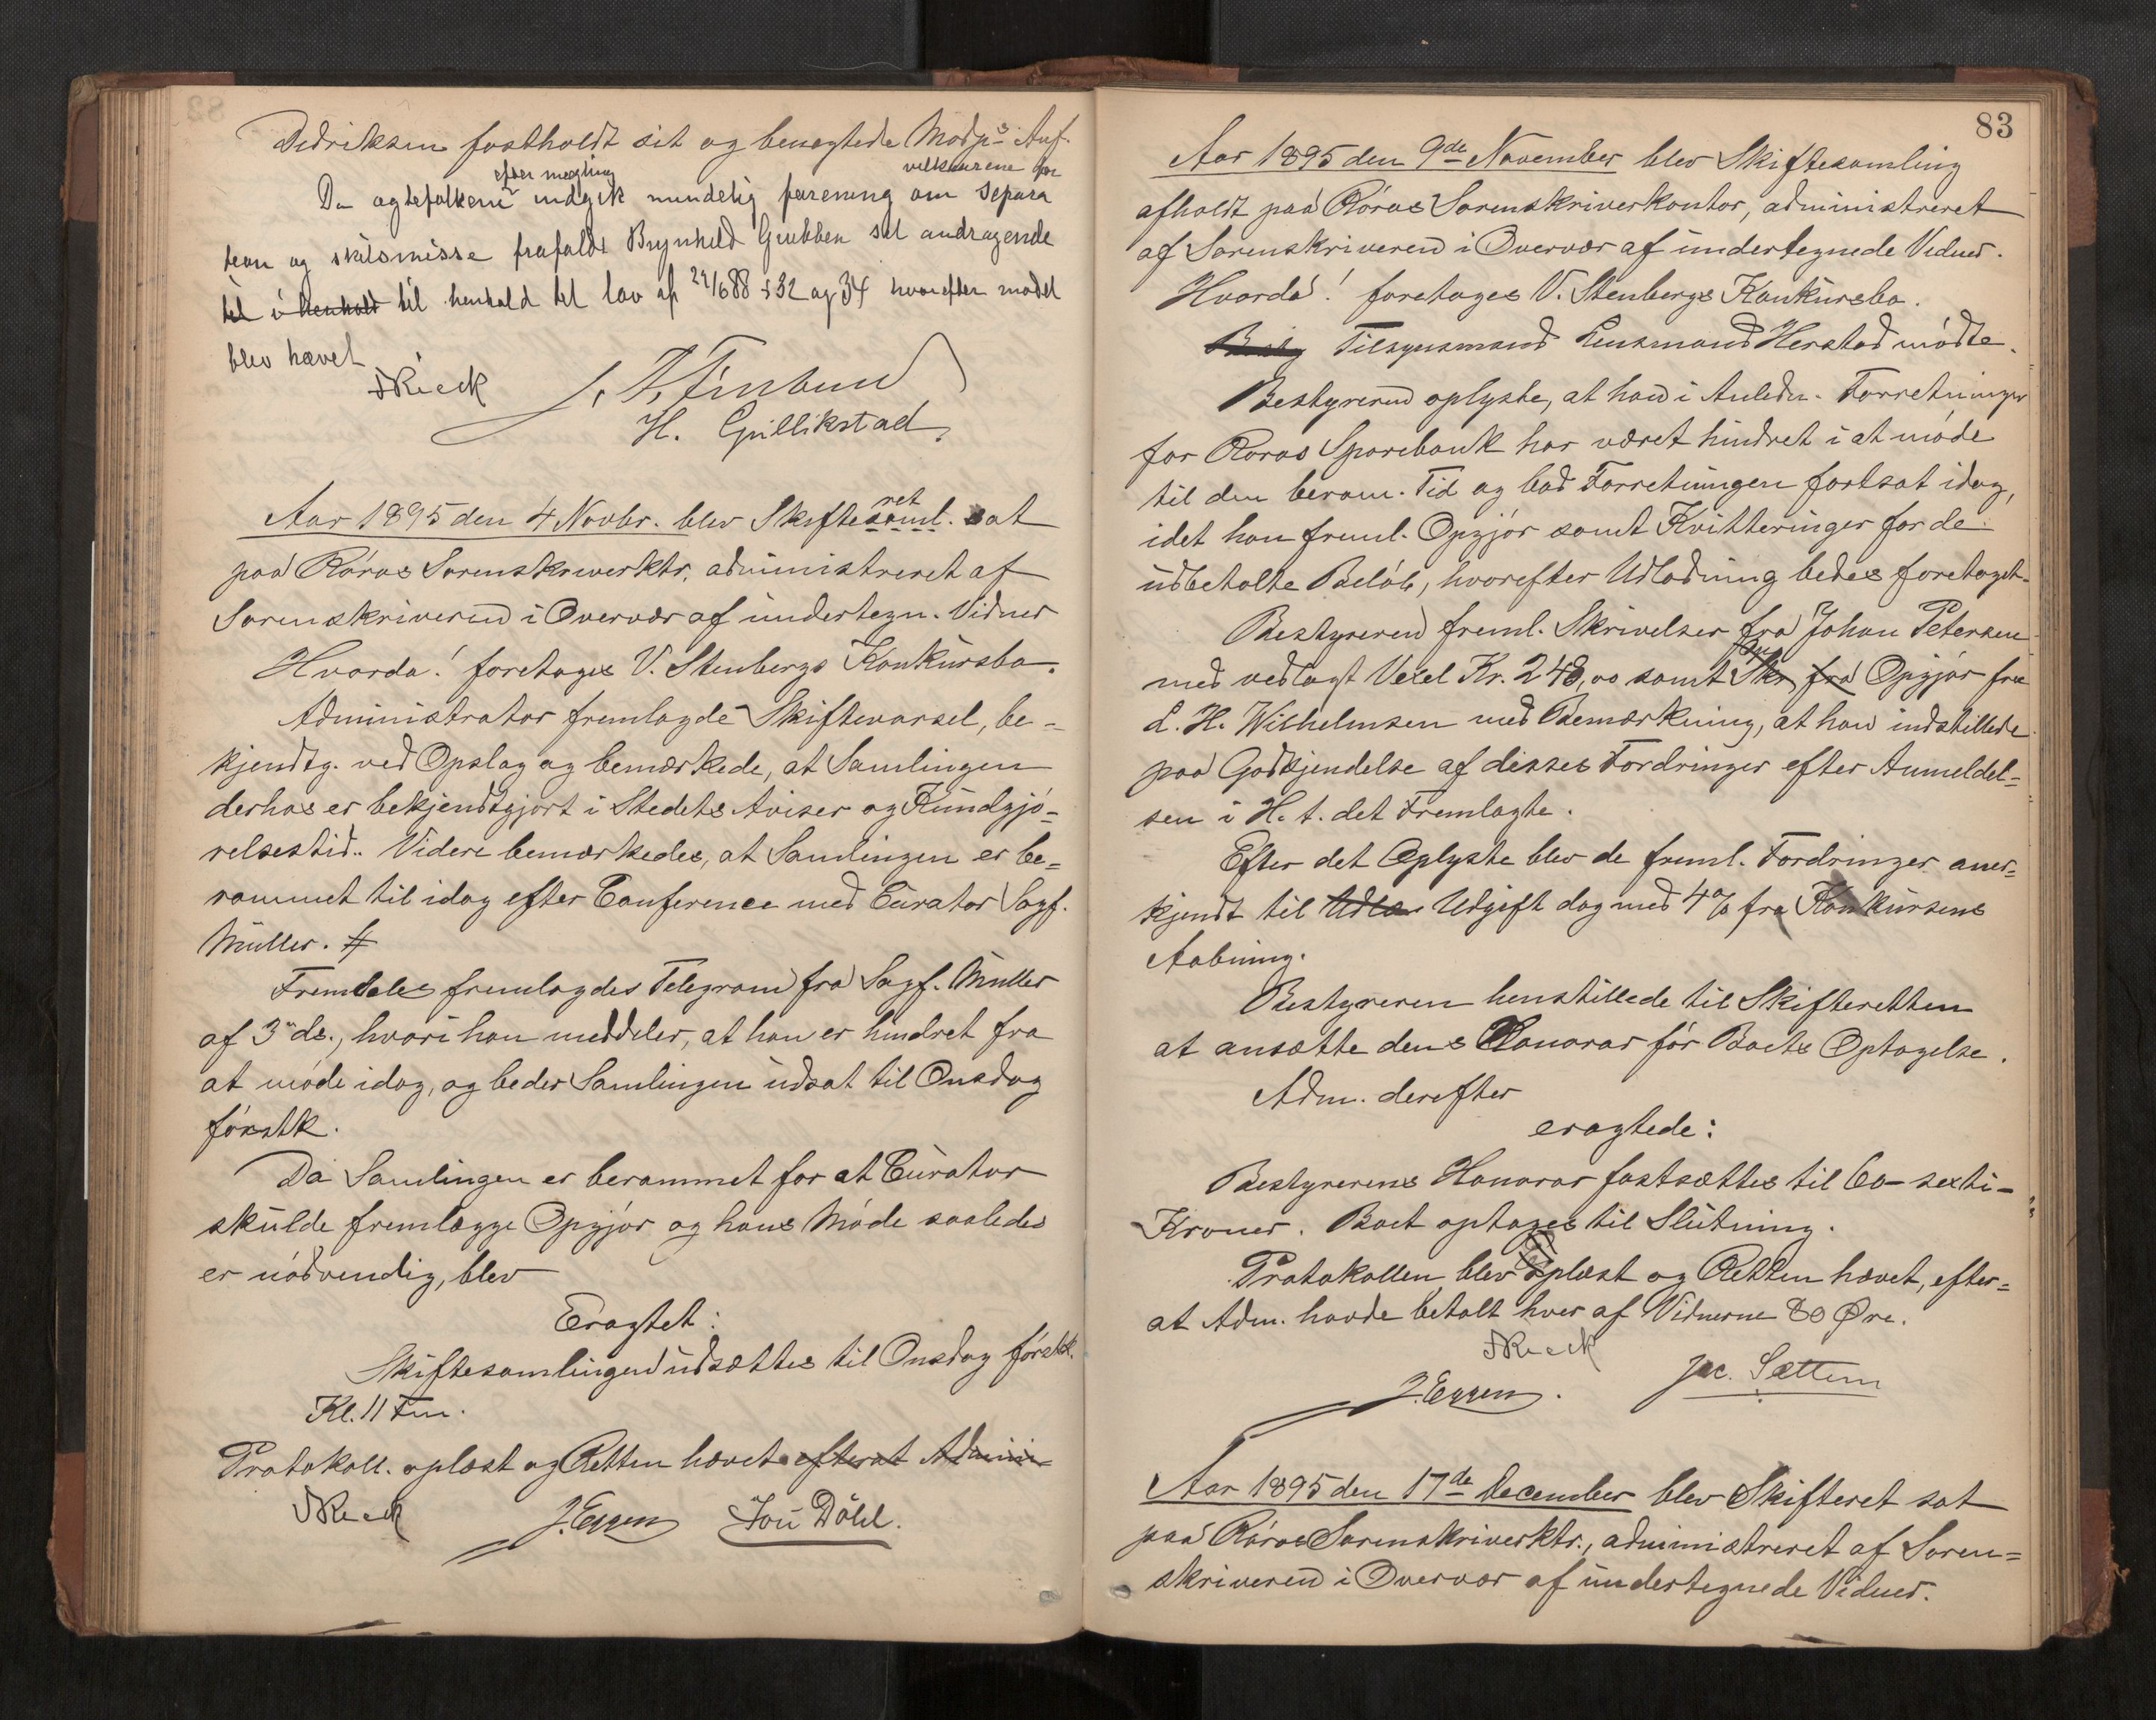 Didriksen fastholdt sit og benægtede Modp's Anf.
Da ægtefolkene efter mægling indgik mindelig forening om vilkaarene for separa
tion og skilsmisse frafaldt Brynhild Grubben sit andragende
til i henhold til henhold til lov af 21/6 88 § 32 og 34 hvorefter mødet
blev hævet
H. Gullikstad
Aar 1895 den 4 Novbr. blev Skifteret saml. sat
paa Røros Sorenskriverktr. administreret af
Sorenskriveren i Overvær af undertegn. Vidner
Hvorda! foretoges V. Stenbergs Konkursbo.
Administrator fremlagde Skiftevarsel, be=
kjendtg. ved Opslag og bemærkede, at Samlingen
derhos er bekjendtgjort i Stedets Aviser og Kundgjø=
relsestid.. Videre bemærkedes, at Samlingen er be=
rammet til idag efter Conference med Curator Sagf.
Müller.
Fremdeles fremlagdes Telegram fra Sagf. Müller
af 3 ds., hvori han meddeler, at han er hindret fra
at møde idag, og beder Samlingen udsat til Onsdag
førstk.
Da Samlingen er berammet for at Curator
skulde fremlægge Opgjør og hans Møde saaledes
er nødvendig, blev
Eragtet:
Skiftesamlingen udsættes til Onsdag førstk.
Kl. 11 Fm.
Protokoll. oplæst og Retten hævet efterat Admini-
J. Eggen Jon Døhl.
83
Aar 1895 den 9de November blev Skiftesamling
afholdt paa Røros Sorenskriverkontor, administreret
af Sorenskriveren i Overvær af undertegnede Vidner.
Hvorda! foretoges V. Stenbergs Konkursbo.
Tilsynsmand Lensmand Herstad mødte.
Bestyreren oplyste, at han i Anledn. Forretninger
for Røros Sparebank har været hindret i at møde
til den beram. Tid og bad Forretningen fortsat idag,
idet han freml. Opgjør samt Kvitteringer for de
udbetalte Beløb, hvorefter Udlodning bedes foretaget.
Bestyreren freml. Skrivelser fra Johan Petersen
med vedlagt Vexel Kr. 248,00 samt Skr fra Opgjør fra
L. H. Wilhelmsen med Bemærkning, at han indstillede
paa Godkjendelse af disses Fordringer efter Anmeldel=
sen i H. t. det Fremlagte.
Efter det Oplyste blev de freml. Fordringer aner=
kjendt til Udlæ Udgift dog med 4 % fra Konkursens
Aabning.
Bestyreren henstillede til Skifteretten
at ansætte dens Honorar før Boets Optagelse.
Adm. derefter
eragtede:
Bestyrerens Honorar fastsættes til 60 - sexti -
Kroner. Boet optages til Slutning.
Protokollen blev oplæst og Retten hævet, efter=
at Adm. havde betalt hver af Vidnerne 80 Øre.
J. Eggen. Jac. Sættem
Aar 1895 den 17de December blev Skifteret sat
paa Røros Sorenskriverktr., administreret af Soren=
skriveren i Overvær af undertegnede Vidner.